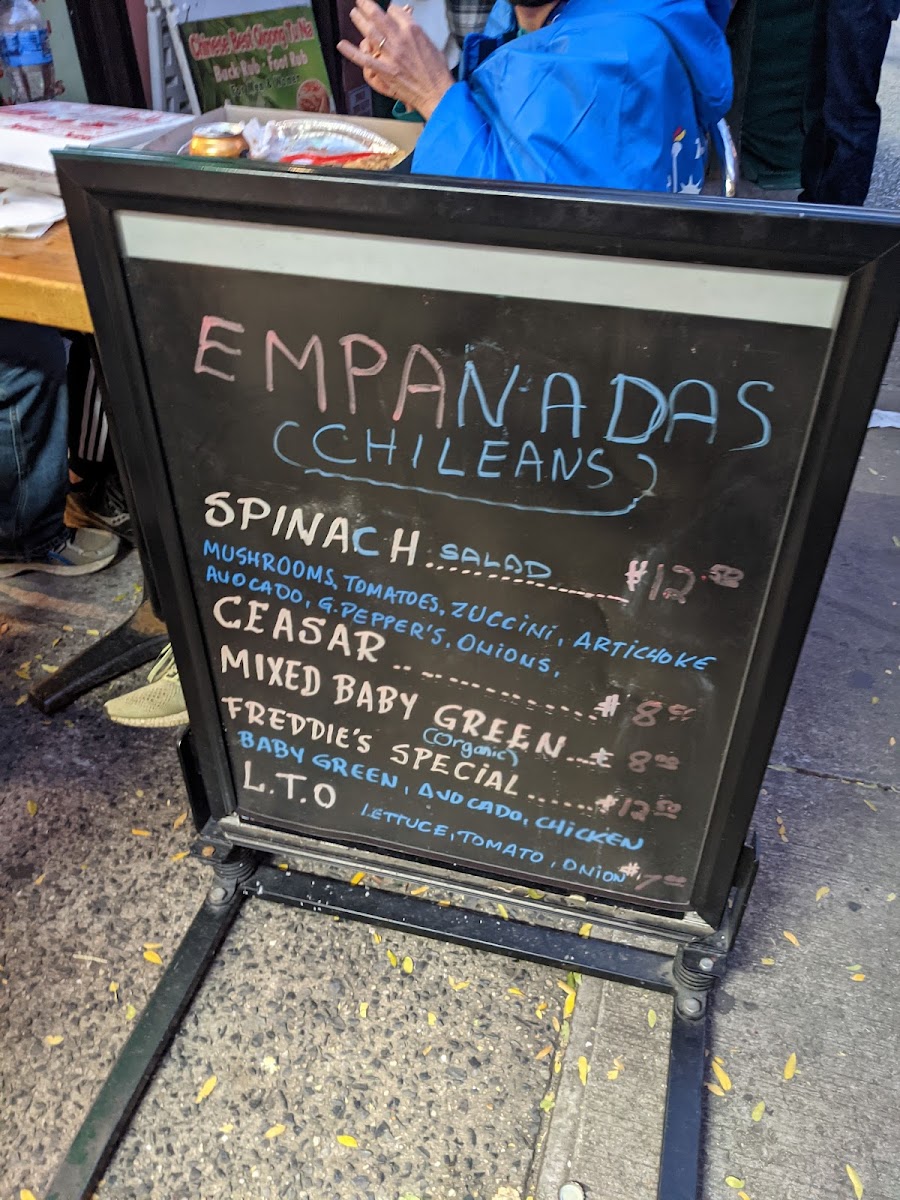 Chinese Best Qigong Tu Na
Back Rub · Foot Rub
For Men & Women
EMPANADAS
(CHILEANS)
SPINACH SALAD $12.50
MUSHROOMS, TOMATOES, ZUCCINI, ARTICHOKE
AVOCADO, G. PEPPER'S, ONIONS,
CEASAR $8.50
MIXED BABY GREEN 8.00
(Organic)
FREDDIE'S SPECIAL $12.50
BABY GREEN, AVOCADO, CHICKEN
L.T.O
LETTUCE, TOMATO, ONION $7.00